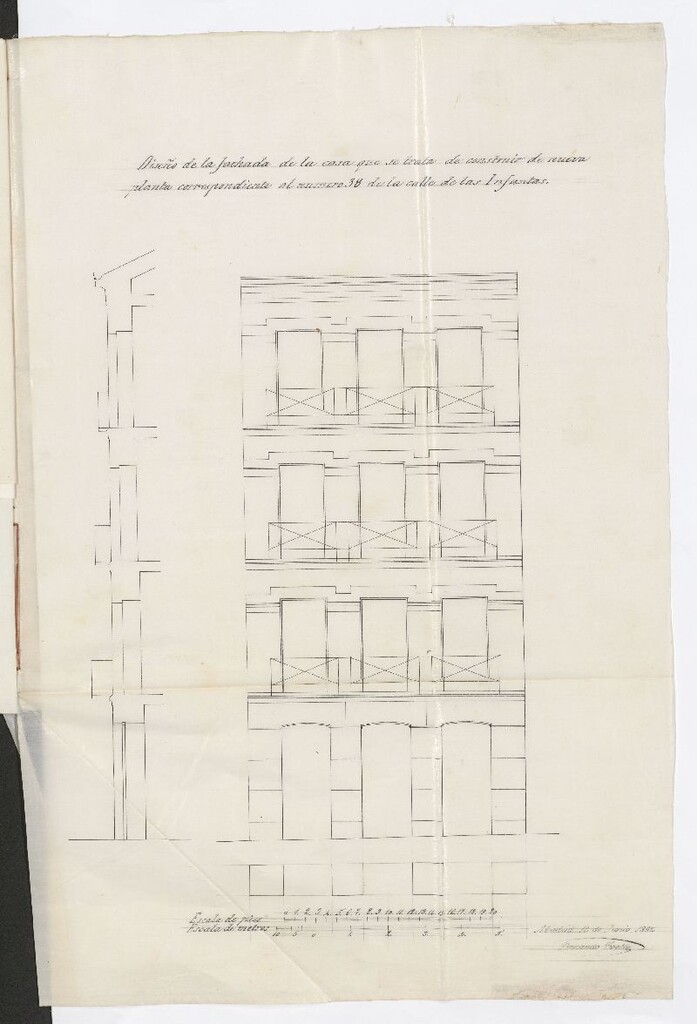 Diseño de la fachada de la casa que se trata de construir de nueva
planta correspondiente al numero 38 de la calle de las Infantas.
Escala de pies
0 1 2 3 4 5 6 7 8 9 10 11 12 13 14 15 16 17 18 19 20
Escala de metros
10 5 0 1 2 3 4 5
Madrid 12 de Junio 1852
Fernando